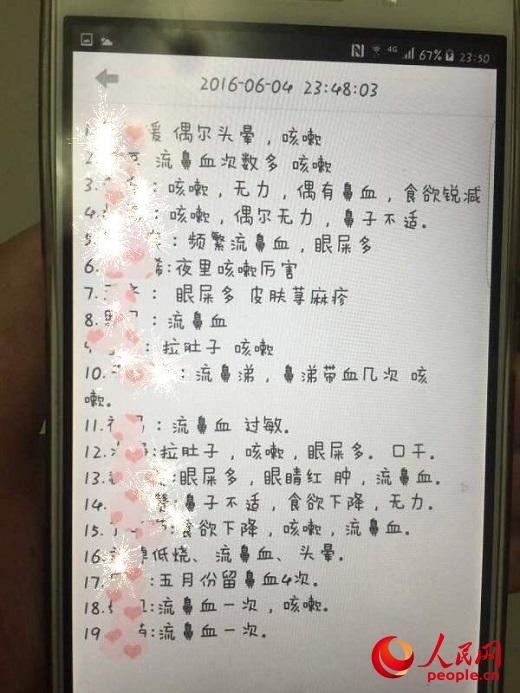 4G 67% 23:50
2016-06-04 23:48:03
1. 爱 偶尔头晕，咳嗽
2. 流鼻血次数多 咳嗽
3. ：咳嗽，无力，偶有鼻血，食欲锐减
4. ：咳嗽，偶尔无力，鼻子不适。
5. ：频繁流鼻血，眼屎多
6. :夜里咳嗽厉害
7. ：眼屎多 皮肤荨麻疹
8. ：流鼻血
9. ：拉肚子 咳嗽
10. ：流鼻涕，鼻涕带血几次 咳
嗽。
11. ：流鼻血 过敏。
12. :拉肚子，咳嗽，眼屎多。口干。
13. :眼屎多，眼睛红 肿，流鼻血。
14. :鼻子不适，食欲下降，无力。
15. :食欲下降，咳嗽，流鼻血。
16. 低烧、流鼻血、头晕。
17. :五月份留鼻血4次。
18. :流鼻血一次，咳嗽。
19 :流鼻血一次。
人民网
people.cn